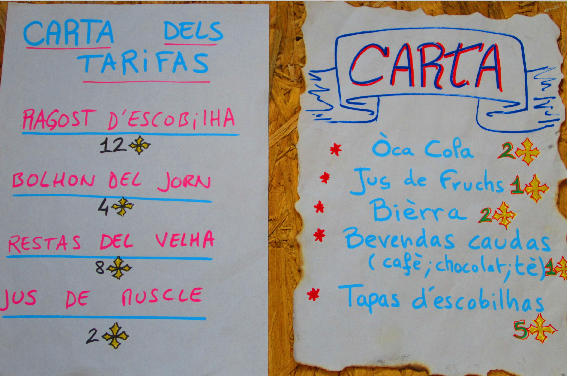 CARTA DELS
TARIFAS
RAGOST D'ESCOBILHA
12
BOLHON DEL JORN
4
RESTAS DEL VELHA
8
JUS DE MUSCLE
2
CARTA
* Òca Cola 2
* Jus de Fruchs 1
* Bièrra 2
* Bevendas caudas
(cafè, chocolat, tè) 1
* Tapas d'escobilhas
5